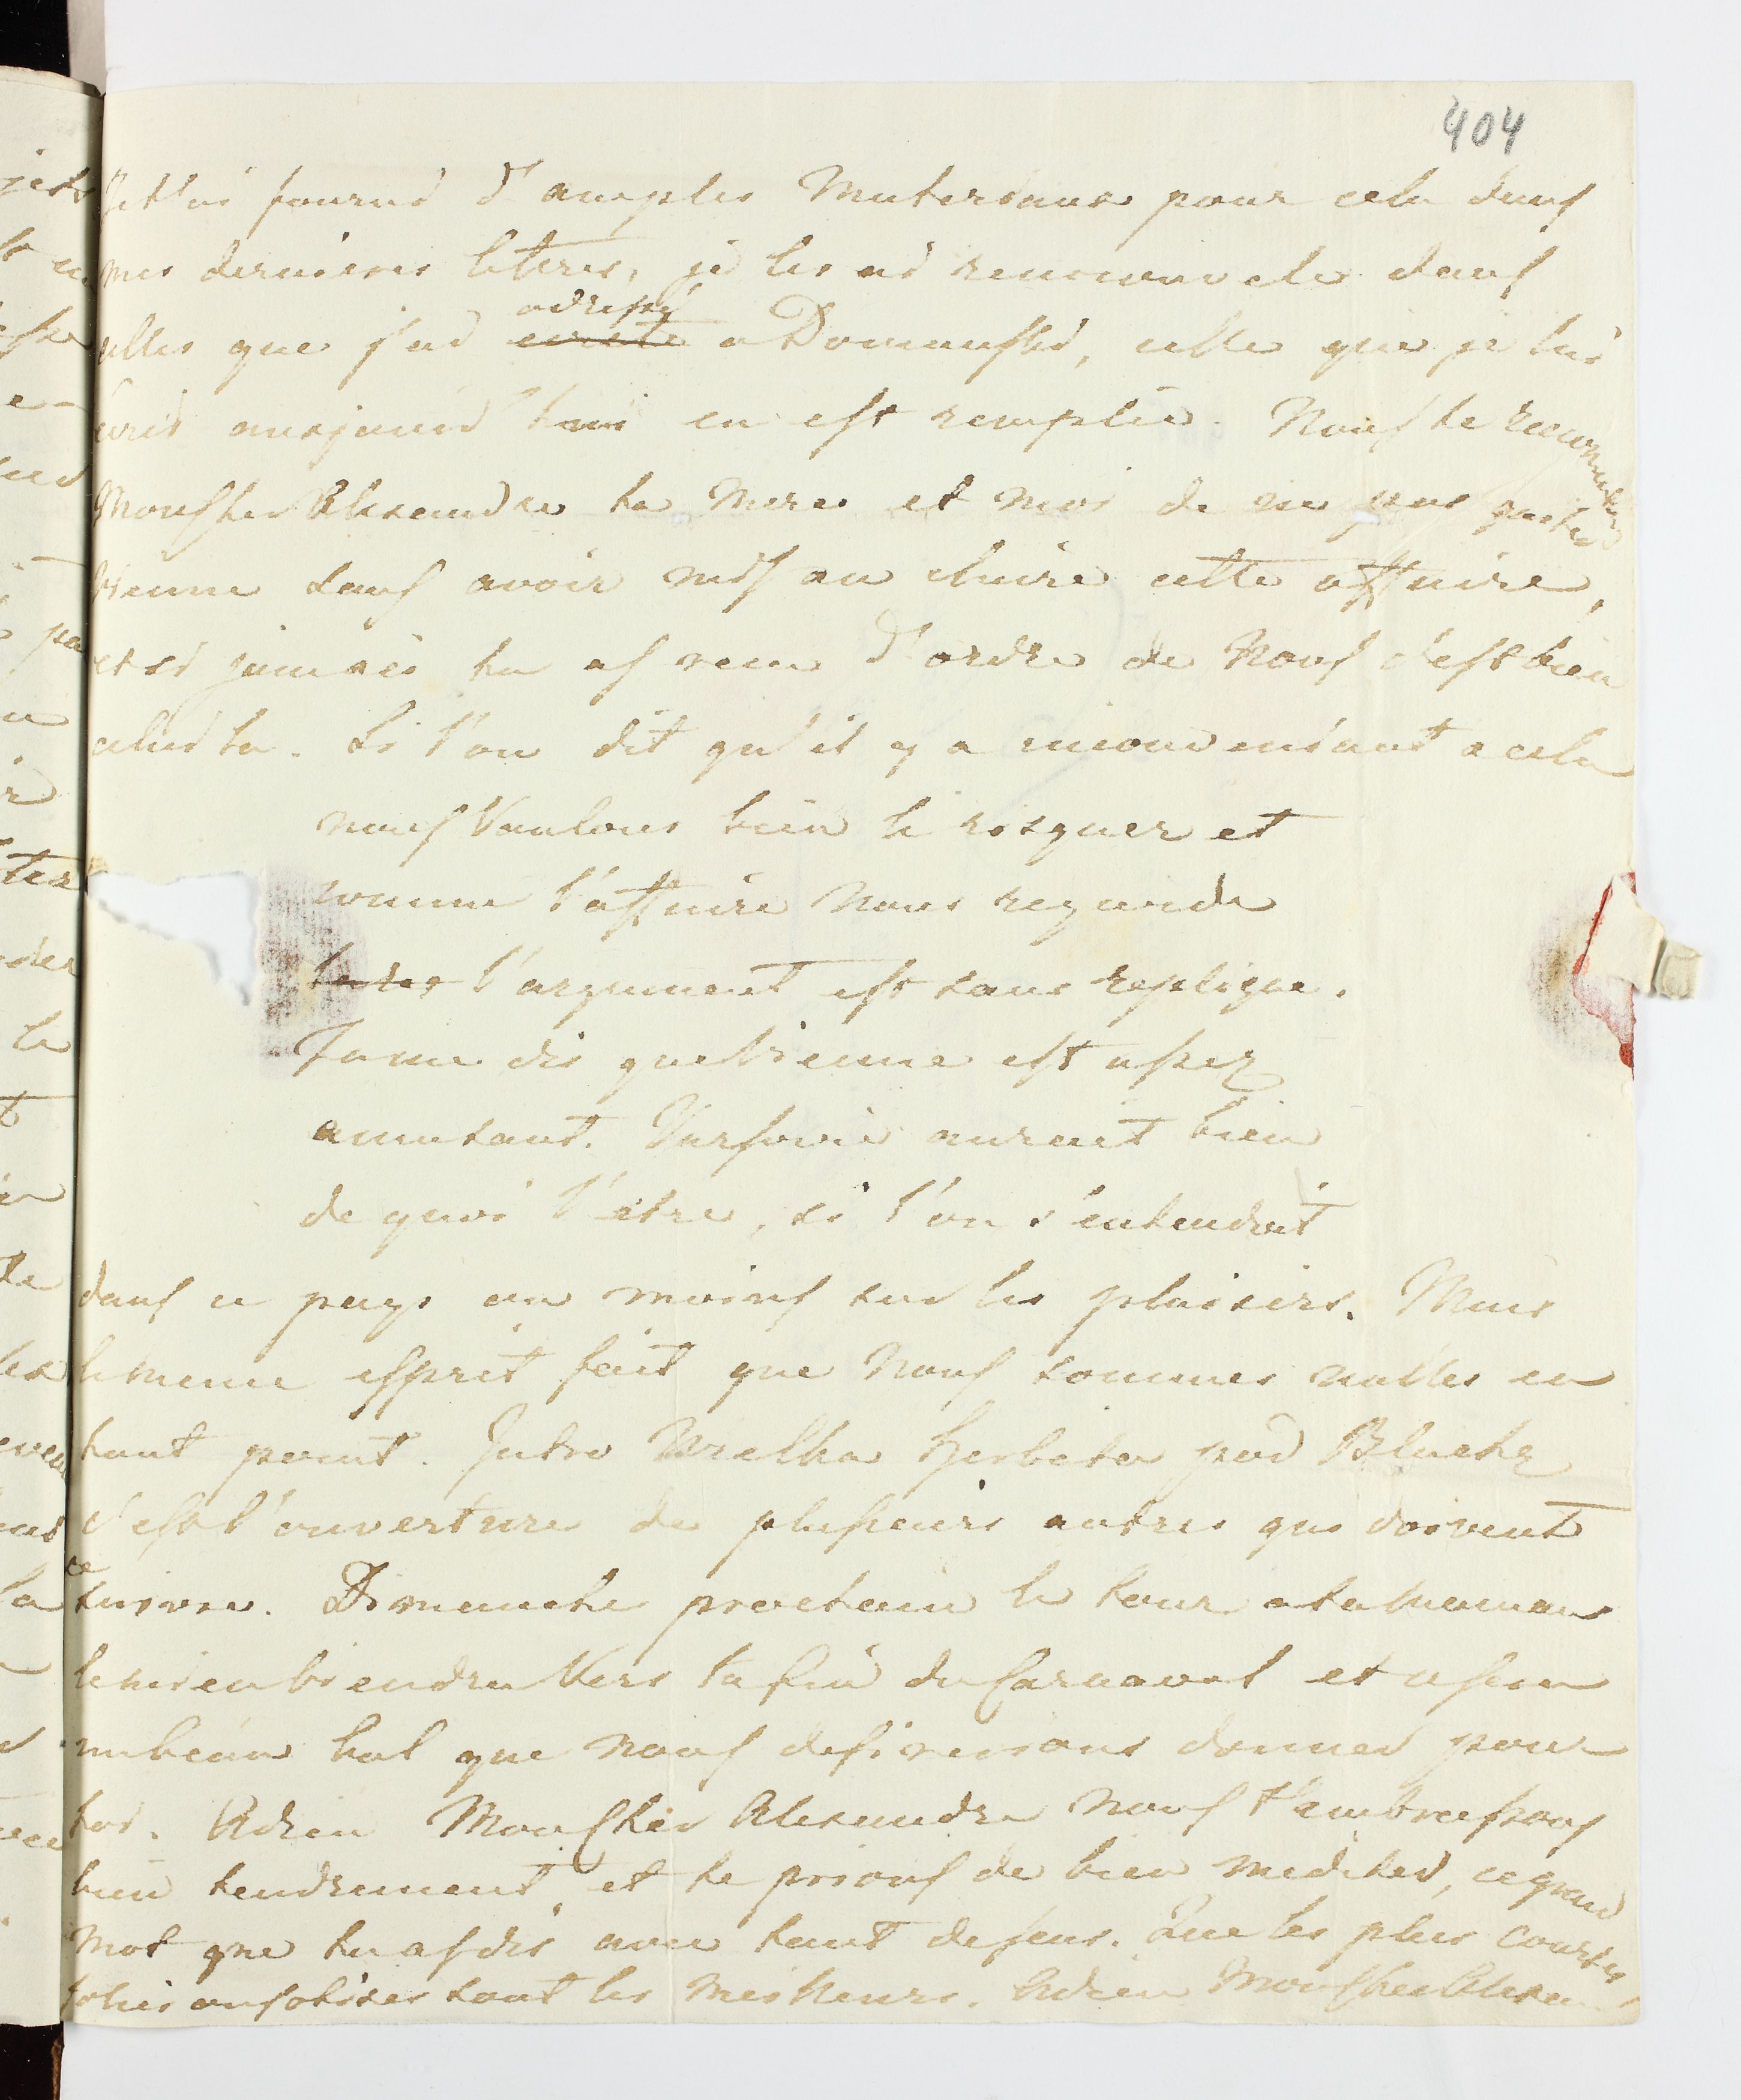 404
Je t'ai fourni d'amples Materiaux pour cela dans
mes dernieres lettres, je les ai renouvelé dans
celles que j'ai ecrite adressé a Domanski, celle que je lui
ecris aujourd'hui en est remplie. Nous te recommandons
Mon cher Alexandre ta Mere et moi de ne pas quitter
Vienne sans avoir mis au claire cette affaire,
et si jamais tu as recu d'ordre de Nous c'est bien
celui la. Si l'on dit qu'il y a inconvenient a cela
nous Voulons bien le risquer et
comme l'affaire Nous regarde
l'argument est sans replique.
Tu me dis que Vienne est assez
amusant. Varsovie auroit bien
de quoi l'etre, si l'on s'entendoit
dans ce pays au moins sur les plaisirs. Mais
le meme esprit fait que Nous sommes nulles en
tout point. Jutro Wielka Herbata pod Blachą
c'est l'ouverture de plusieurs autres qui doivent
se suivre. Dimanche prochain le tour a ta Maman
le mien viendra Vers la fin du Carnaval et se sera
un beau bal que nous desirerions donner pour
toi. Adieu Mon cher Alexandre nous t'embrassons
bien tendrement, et te prions de bien mediter, ce grand
mot que tu as dis avec tant de sens. Que les plus courtes
folies ou sotises sont les meilleures. Adieu Mon cher Alexan